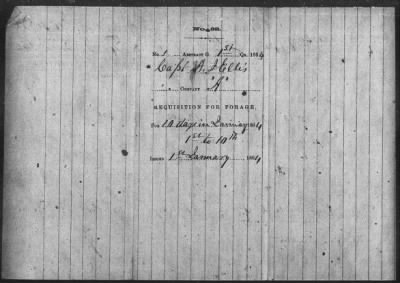 No. 1 Abstract G. 1st Qr. 1864
Capt A. J. Ellis
Company "A"
REQUISITION FOR FORAGE,
For 10 days in January 1864
1st to 10th
Issued 1st January 1864